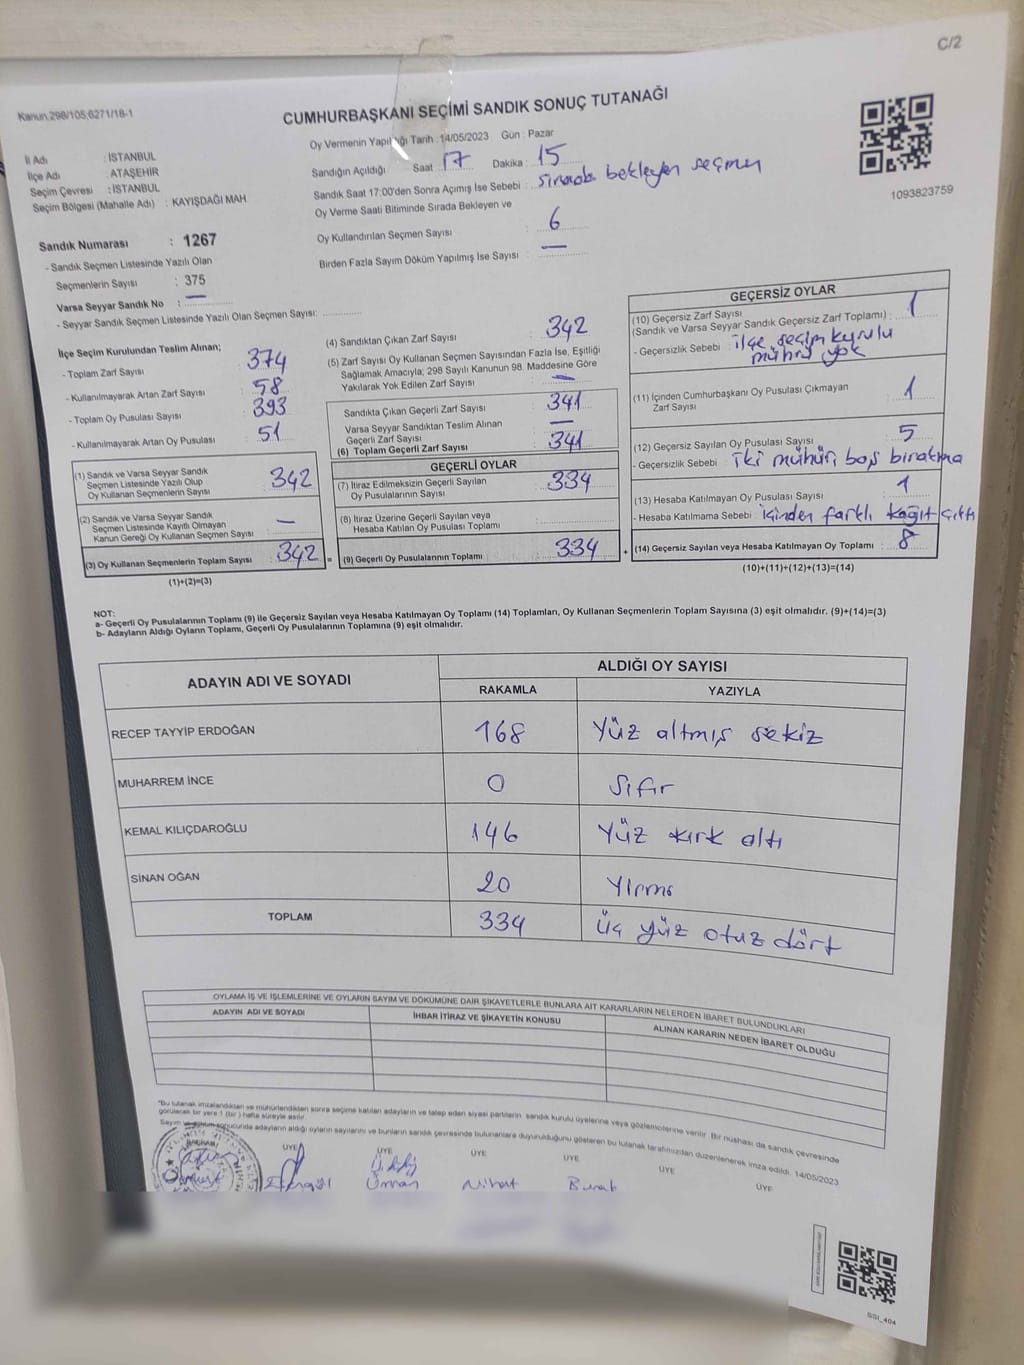 C/2
Kanun.298/105;6271/18-1
CUMHURBAŞKANI SEÇİMİ SANDIK SONUÇ TUTANAĞI
İl Adı : İSTANBUL
İlçe Adı : ATAŞEHİR
Seçim Çevresi : İSTANBUL
Seçim Bölgesi (Mahalle Adı) : KAYIŞDAĞI MAH.
Oy Vermenin Yapıldığı Tarih : 14/05/2023 Gün : Pazar
Sandığın Açıldığı Saat 17 Dakika : 15
Sandık Saat 17:00'den Sonra Açımış İse Sebebi : sırada bekleyen seçmen
Oy Verme Saati Bitiminde Sırada Bekleyen ve
Oy Kullandırılan Seçmen Sayısı : 6
Birden Fazla Sayım Döküm Yapılmış İse Sayısı : —
1093823759
Sandık Numarası : 1267
- Sandık Seçmen Listesinde Yazılı Olan
Seçmenlerin Sayısı : 375
Varsa Seyyar Sandık No : —
- Seyyar Sandık Seçmen Listesinde Yazılı Olan Seçmen Sayısı:
İlçe Seçim Kurulundan Teslim Alınan;
- Toplam Zarf Sayısı : 374
- Kullanılmayarak Artan Zarf Sayısı : 58
- Toplam Oy Pusulası Sayısı : 393
- Kullanılmayarak Artan Oy Pusulası : 51
(1) Sandık ve Varsa Seyyar Sandık
Seçmen Listesinde Yazılı Olup
Oy Kullanan Seçmenlerin Sayısı : 342
(2) Sandık ve Varsa Seyyar Sandık
Seçmen Listesinde Kayıtlı Olmayan
Kanun Gereği Oy Kullanan Seçmen Sayısı : —
(3) Oy Kullanan Seçmenlerin Toplam Sayısı : 342 =
(1)+(2)=(3)
(4) Sandıktan Çıkan Zarf Sayısı : 342
(5) Zarf Sayısı Oy Kullanan Seçmen Sayısından Fazla İse, Eşitliği
Sağlamak Amacıyla; 298 Sayılı Kanunun 98. Maddesine Göre
Yakılarak Yok Edilen Zarf Sayısı : —
Sandıkta Çıkan Geçerli Zarf Sayısı : 341
Varsa Seyyar Sandıktan Teslim Alınan
Geçerli Zarf Sayısı : —
(6) Toplam Geçerli Zarf Sayısı : 341
GEÇERLİ OYLAR
(7) İtiraz Edilmeksizin Geçerli Sayılan
Oy Pusulalarının Sayısı : 334
(8) İtiraz Üzerine Geçerli Sayılan veya
Hesaba Katılan Oy Pusulası Toplamı :
(9) Geçerli Oy Pusulalarının Toplamı : 334 +
GEÇERSİZ OYLAR
(10) Geçersiz Zarf Sayısı
(Sandık ve Varsa Seyyar Sandık Geçersiz Zarf Toplamı) : 1
- Geçersizlik Sebebi : ilçe seçim kurulu
mührü yok
(11) İçinden Cumhurbaşkanı Oy Pusulası Çıkmayan
Zarf Sayısı : 1
(12) Geçersiz Sayılan Oy Pusulası Sayısı : 5
- Geçersizlik Sebebi : iki mühür, boş bırakma
(13) Hesaba Katılmayan Oy Pusulası Sayısı : 1
- Hesaba Katılmama Sebebi : içinden farklı kağıt çıktı
(14) Geçersiz Sayılan veya Hesaba Katılmayan Oy Toplamı : 8
(10)+(11)+(12)+(13)=(14)
NOT:
a- Geçerli Oy Pusulalarının Toplamı (9) ile Geçersiz Sayılan veya Hesaba Katılmayan Oy Toplamı (14) Toplamları, Oy Kullanan Seçmenlerin Toplam Sayısına (3) eşit olmalıdır. (9)+(14)=(3)
b- Adayların Aldığı Oyların Toplamı, Geçerli Oy Pusulalarının Toplamına (9) eşit olmalıdır.
ADAYIN ADI VE SOYADI
ALDIĞI OY SAYISI
RAKAMLA YAZIYLA
RECEP TAYYİP ERDOĞAN 168 Yüz altmış sekiz
MUHARREM İNCE 0 Sıfır
KEMAL KILIÇDAROĞLU 146 Yüz kırk altı
SİNAN OĞAN 20 Yirmi
TOPLAM 334 Üç yüz otuz dört
OYLAMA İŞ VE İŞLEMLERİNE VE OYLARIN SAYIM VE DÖKÜMÜNE DAİR ŞİKAYETLERLE BUNLARA AİT KARARLARIN NELERDEN İBARET BULUNDUKLARI
ADAYIN ADI VE SOYADI İHBAR İTİRAZ VE ŞİKAYETİN KONUSU ALINAN KARARIN NEDEN İBARET OLDUĞU
*Bu tutanak imzalandıktan ve mühürlendikten sonra seçime katılan adayların ve talep eden siyasi partilerin sandık kurulu üyelerine veya gözlemcilerine verilir. Bir nüshası da sandık çevresinde
görülecek bir yere 1 (bir ) hafta süreyle asılır.
sonucunda adayların aldığı oyların sayılarını ve bunların sandık çevresinde bulunanlara duyurulduğunu gösteren bu tutanak tarafımızdan düzenlenerek imza edildi. 14/05/2023
BAŞKAN ÜYE ÜYE ÜYE ÜYE ÜYE ÜYE
Nihat Burak
SSI_404